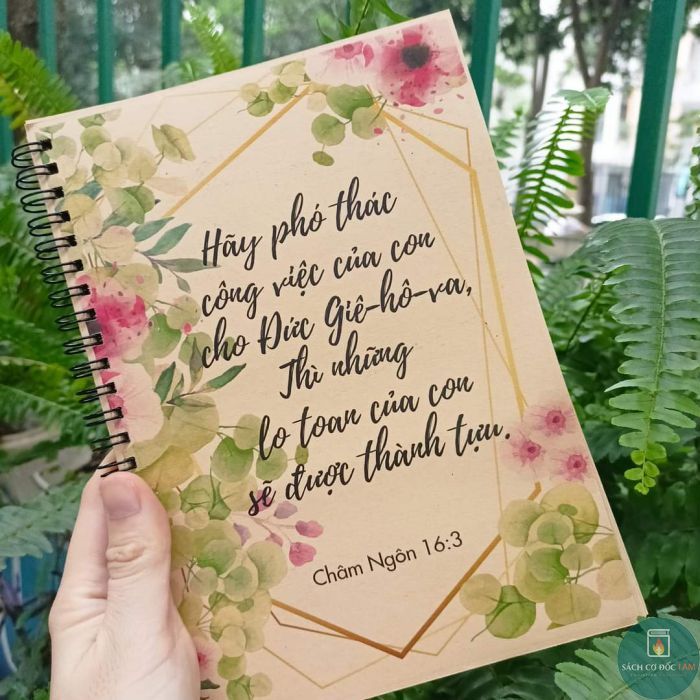 Hãy phó thác
công việc của con
cho Đức Giê-hô-va,
Thì những
lo toan của con
sẽ được thành tựu.
Châm Ngôn 16:3
SÁCH CƠ ĐỐC LAM